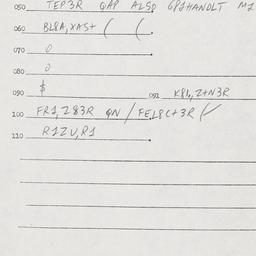 050 TEP3R QAP AL5P GP1HANDLT M1
060 BL8A,XAST ( ( .
070 0
080 0
090 $ 091 K8L,Z+N3R
100 FR1,Z83R QN / FEL8C+3R /
110 R1ZU,R1